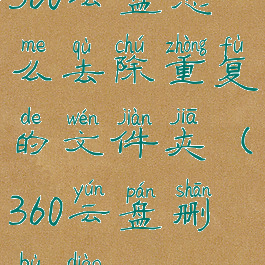 360云盘怎
me qù chú zhòng fù
么去除重复
de wén jiàn jiā
的文件夹（
yún pán shān
360云盘删
bù diào